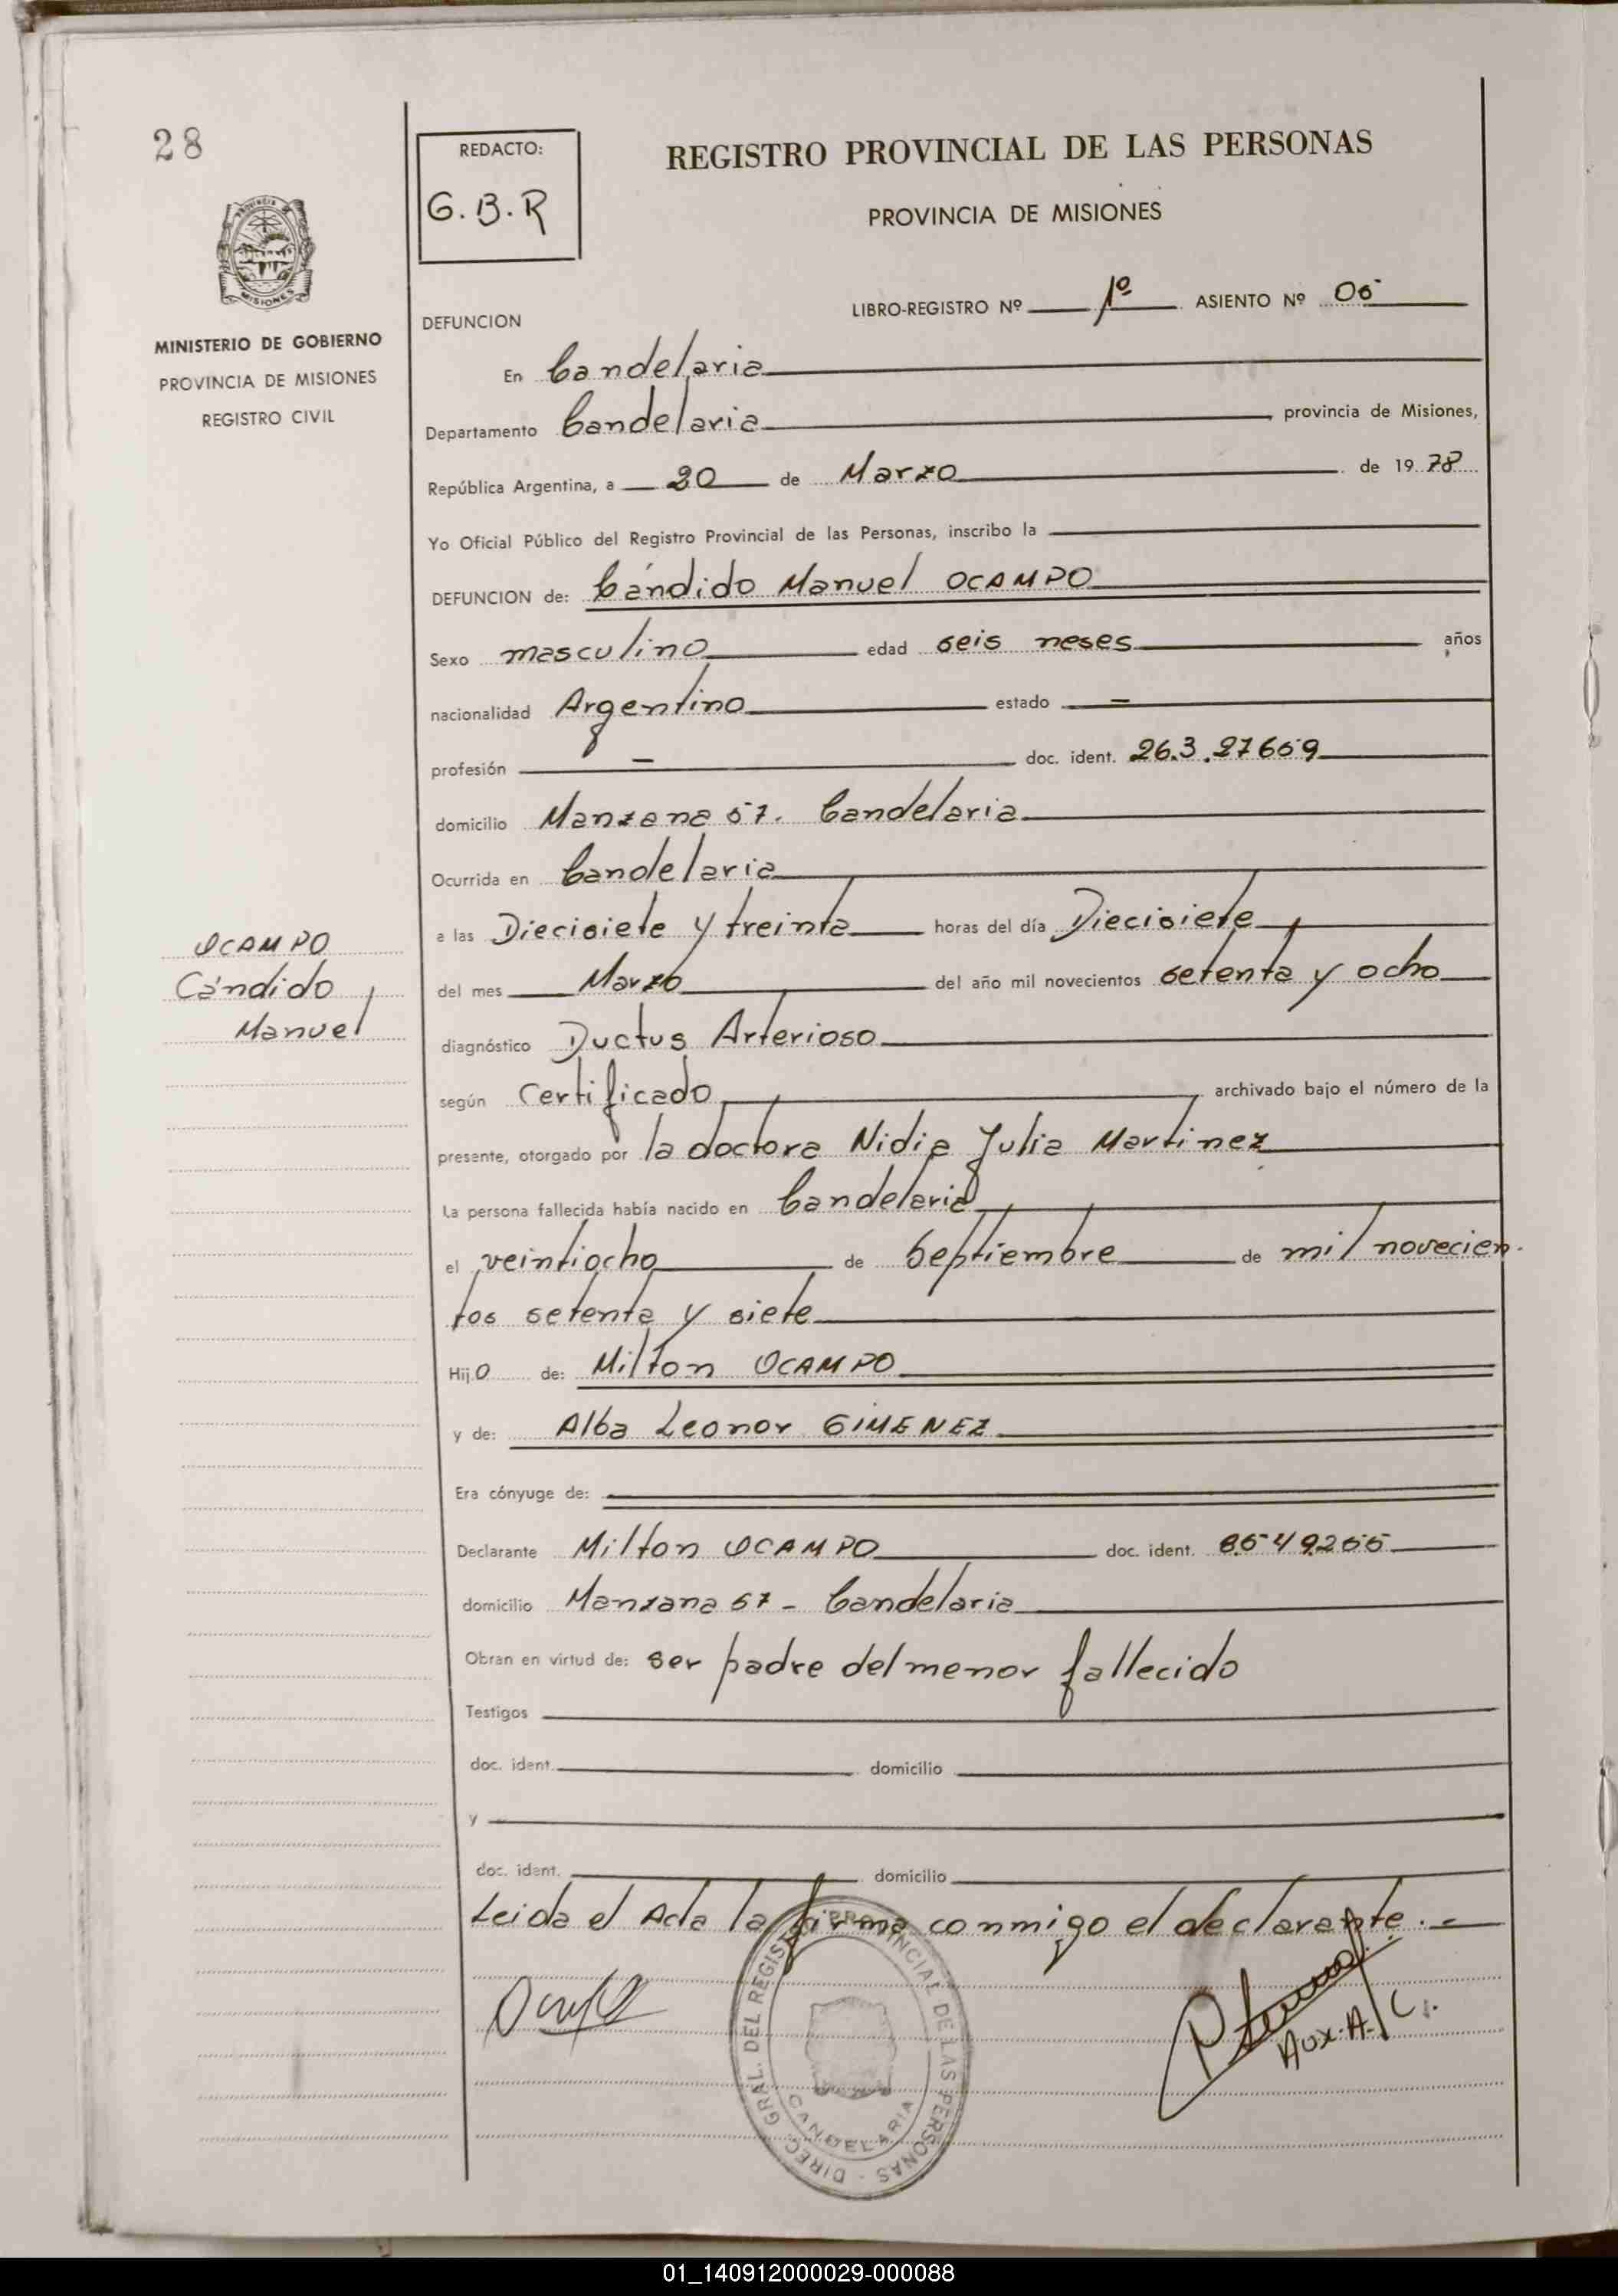 28
REDACTO:
G.B.R
REGISTRO PROVINCIAL DE LAS PERSONAS
PROVINCIA DE MISIONES
PROVINCIA DE
MISIONES
MINISTERIO DE GOBIERNO
PROVINCIA DE MISIONES
REGISTRO CIVIL
LIBRO-REGISTRO Nº 1º ASIENTO Nº 05
DEFUNCION
En Candelaria
Departamento Candelaria provincia de Misiones,
República Argentina, a 20 de Marzo de 1978
Yo Oficial Público del Registro Provincial de las Personas, inscribo la
DEFUNCION de: Cándido Manuel OCAMPO
Sexo masculino edad seis neses años
nacionalidad Argentino estado —
profesión — doc. ident. 26.3.27659
domicilio Manzana 57. Candelaria
Ocurrida en Candelaria
a las Diecisiete y treinta horas del día Diecisiete
del mes Marzo del año mil novecientos setenta y ocho
OCAMPO
Cándido
Manuel
diagnóstico Ductus Arterioso
según Certificado archivado bajo el número de la
presente, otorgado por la doctora Nidia Julia Martinez
La persona fallecida había nacido en Candelaria
el veintiocho de Septiembre de mil novecien-
tos setenta y siete
Hijo de: Milton OCAMPO
y de: Alba Leonor GIMENEZ
Era cónyuge de:
Declarante Milton OCAMPO doc. ident. 8.549.255
domicilio Manzana 57 - Candelaria
Obran en virtud de: ser padre del menor fallecido
Testigos
doc. ident. domicilio
y
doc. ident. domicilio
Leida el Acta la firma conmigo el declarante.-
Aux. A/C.
DIREC. GRAL. DEL REGISTRO PROVINCIAL DE LAS PERSONAS -
CANDELARIA
01_140912000029-000088